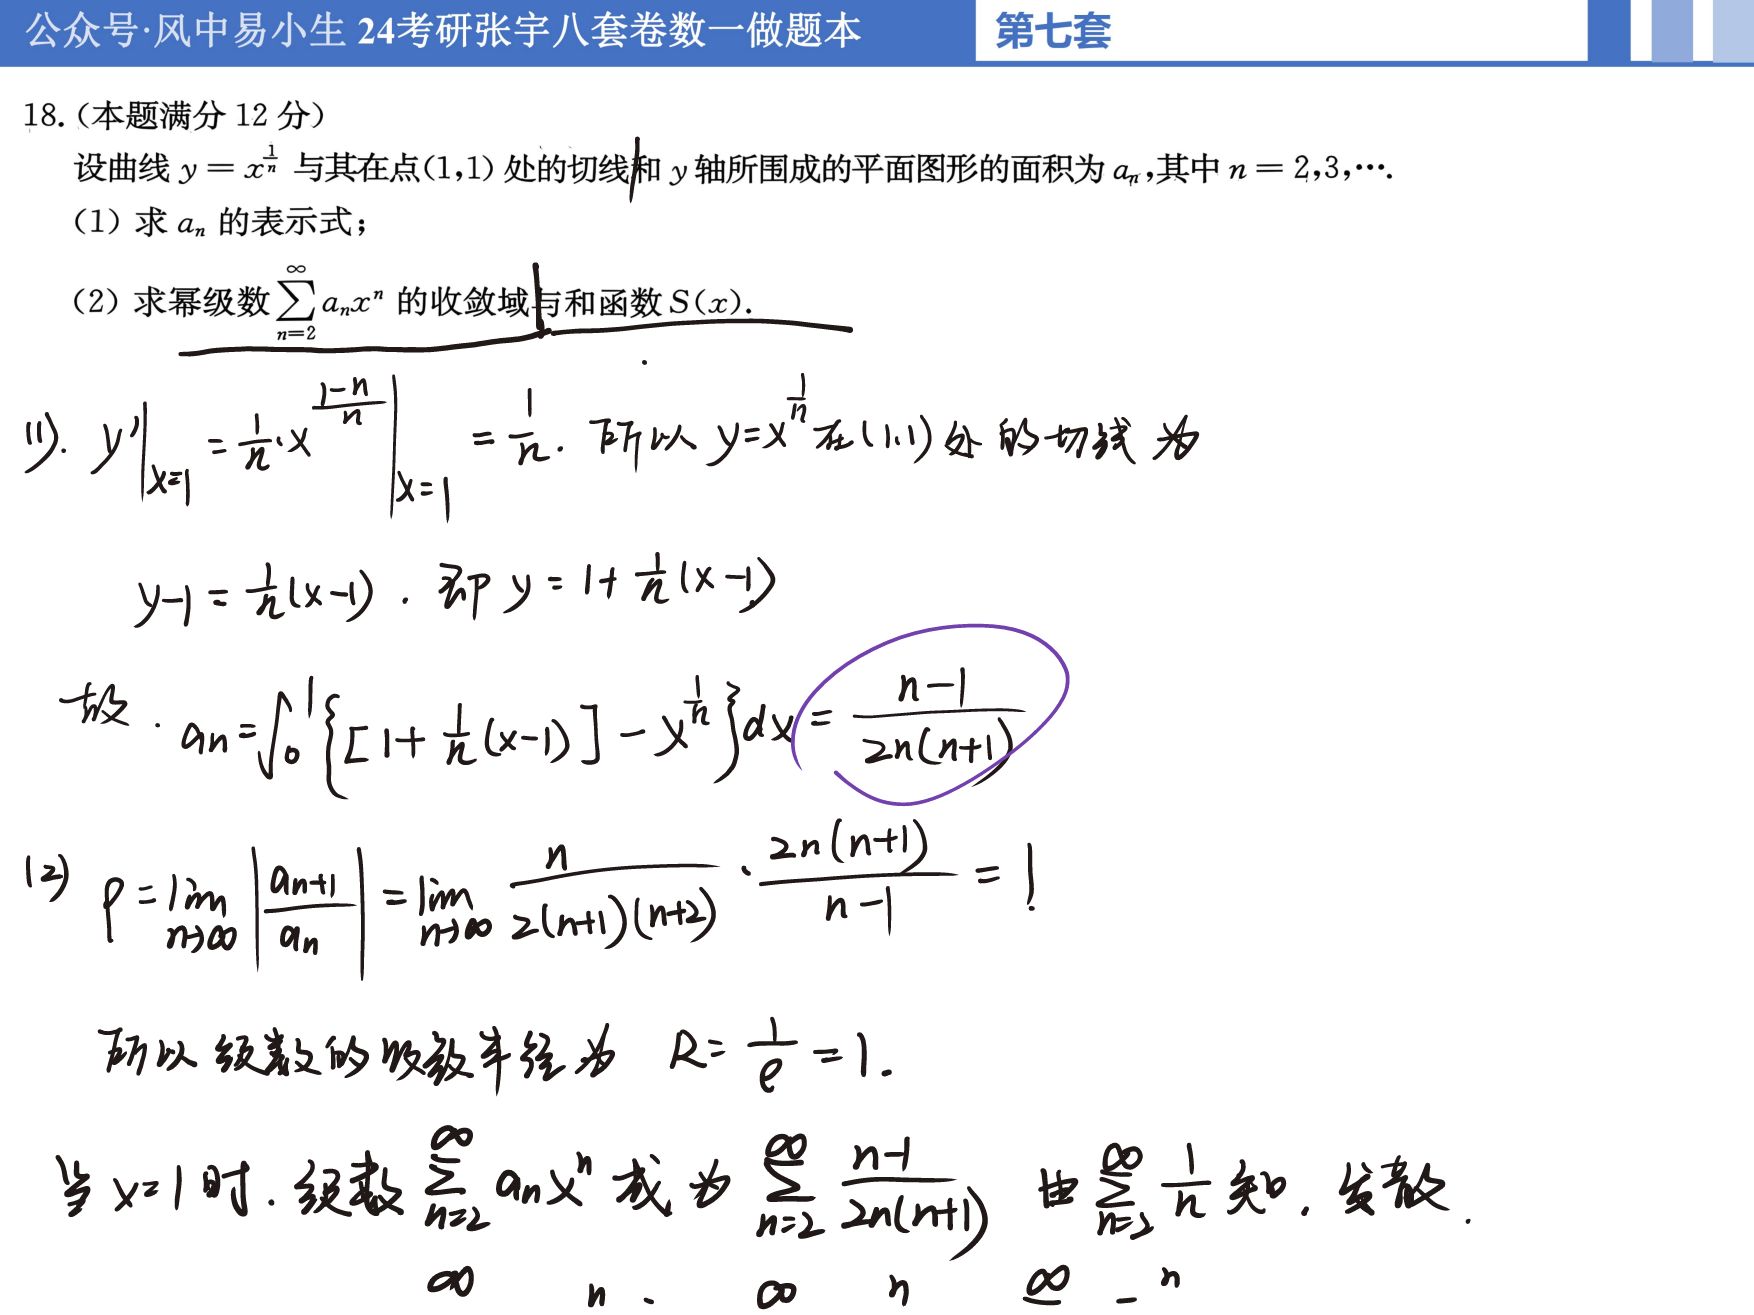 公众号·风中易小生 24考研张宇八套卷数一做题本 第七套
18.（本题满分 12 分）
设曲线 y = x^{\frac{1}{n}} 与其在点(1,1) 处的切线和 y 轴所围成的平面图形的面积为 a_n,其中 n = 2,3,⋯.
（1）求 a_n 的表示式；
（2）求幂级数 \sum_{n=2}^{∞} a_n x^n 的收敛域与和函数 S(x).
(1). y'|_{x=1} = \frac{1}{n}·x^{\frac{1-n}{n}}|_{x=1} = \frac{1}{n}. 所以 y=x^{\frac{1}{n}} 在(1,1)处的切线为
y-1 = \frac{1}{n}(x-1). 即 y = 1+\frac{1}{n}(x-1)
故. a_n = ∫_0^1 {[1+\frac{1}{n}(x-1)] - x^{\frac{1}{n}}}dx = \frac{n-1}{2n(n+1)}
(2) ρ = \lim_{n→∞} |\frac{a_{n+1}}{a_n}| = \lim_{n→∞} \frac{n}{2(n+1)(n+2)} · \frac{2n(n+1)}{n-1} = 1.
所以级数的收敛半径为 R = \frac{1}{ρ} = 1.
当 x=1 时. 级数 \sum_{n=2}^{∞} a_n x^n 成为 \sum_{n=2}^{∞} \frac{n-1}{2n(n+1)} 由 \sum_{n=2}^{∞} \frac{1}{n} 知. 发散.
∞ n . ∞ n ∞ n